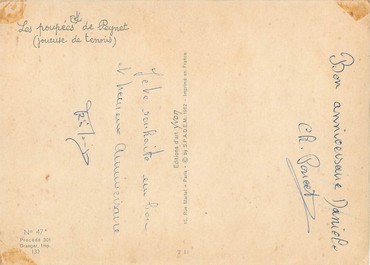 Les poupées de Peynet
(joueuse de tennis)
Je te souhaite un bon
et heureux anniversaire
Editions d'art yvon
15, Rue Martel - Paris - © by S.P.A.D.E.M. - Imprimé en France
Bon anniversaire Daniel
Ch. Poncet
N° 47
Procédé 301
Draeger, Imp.